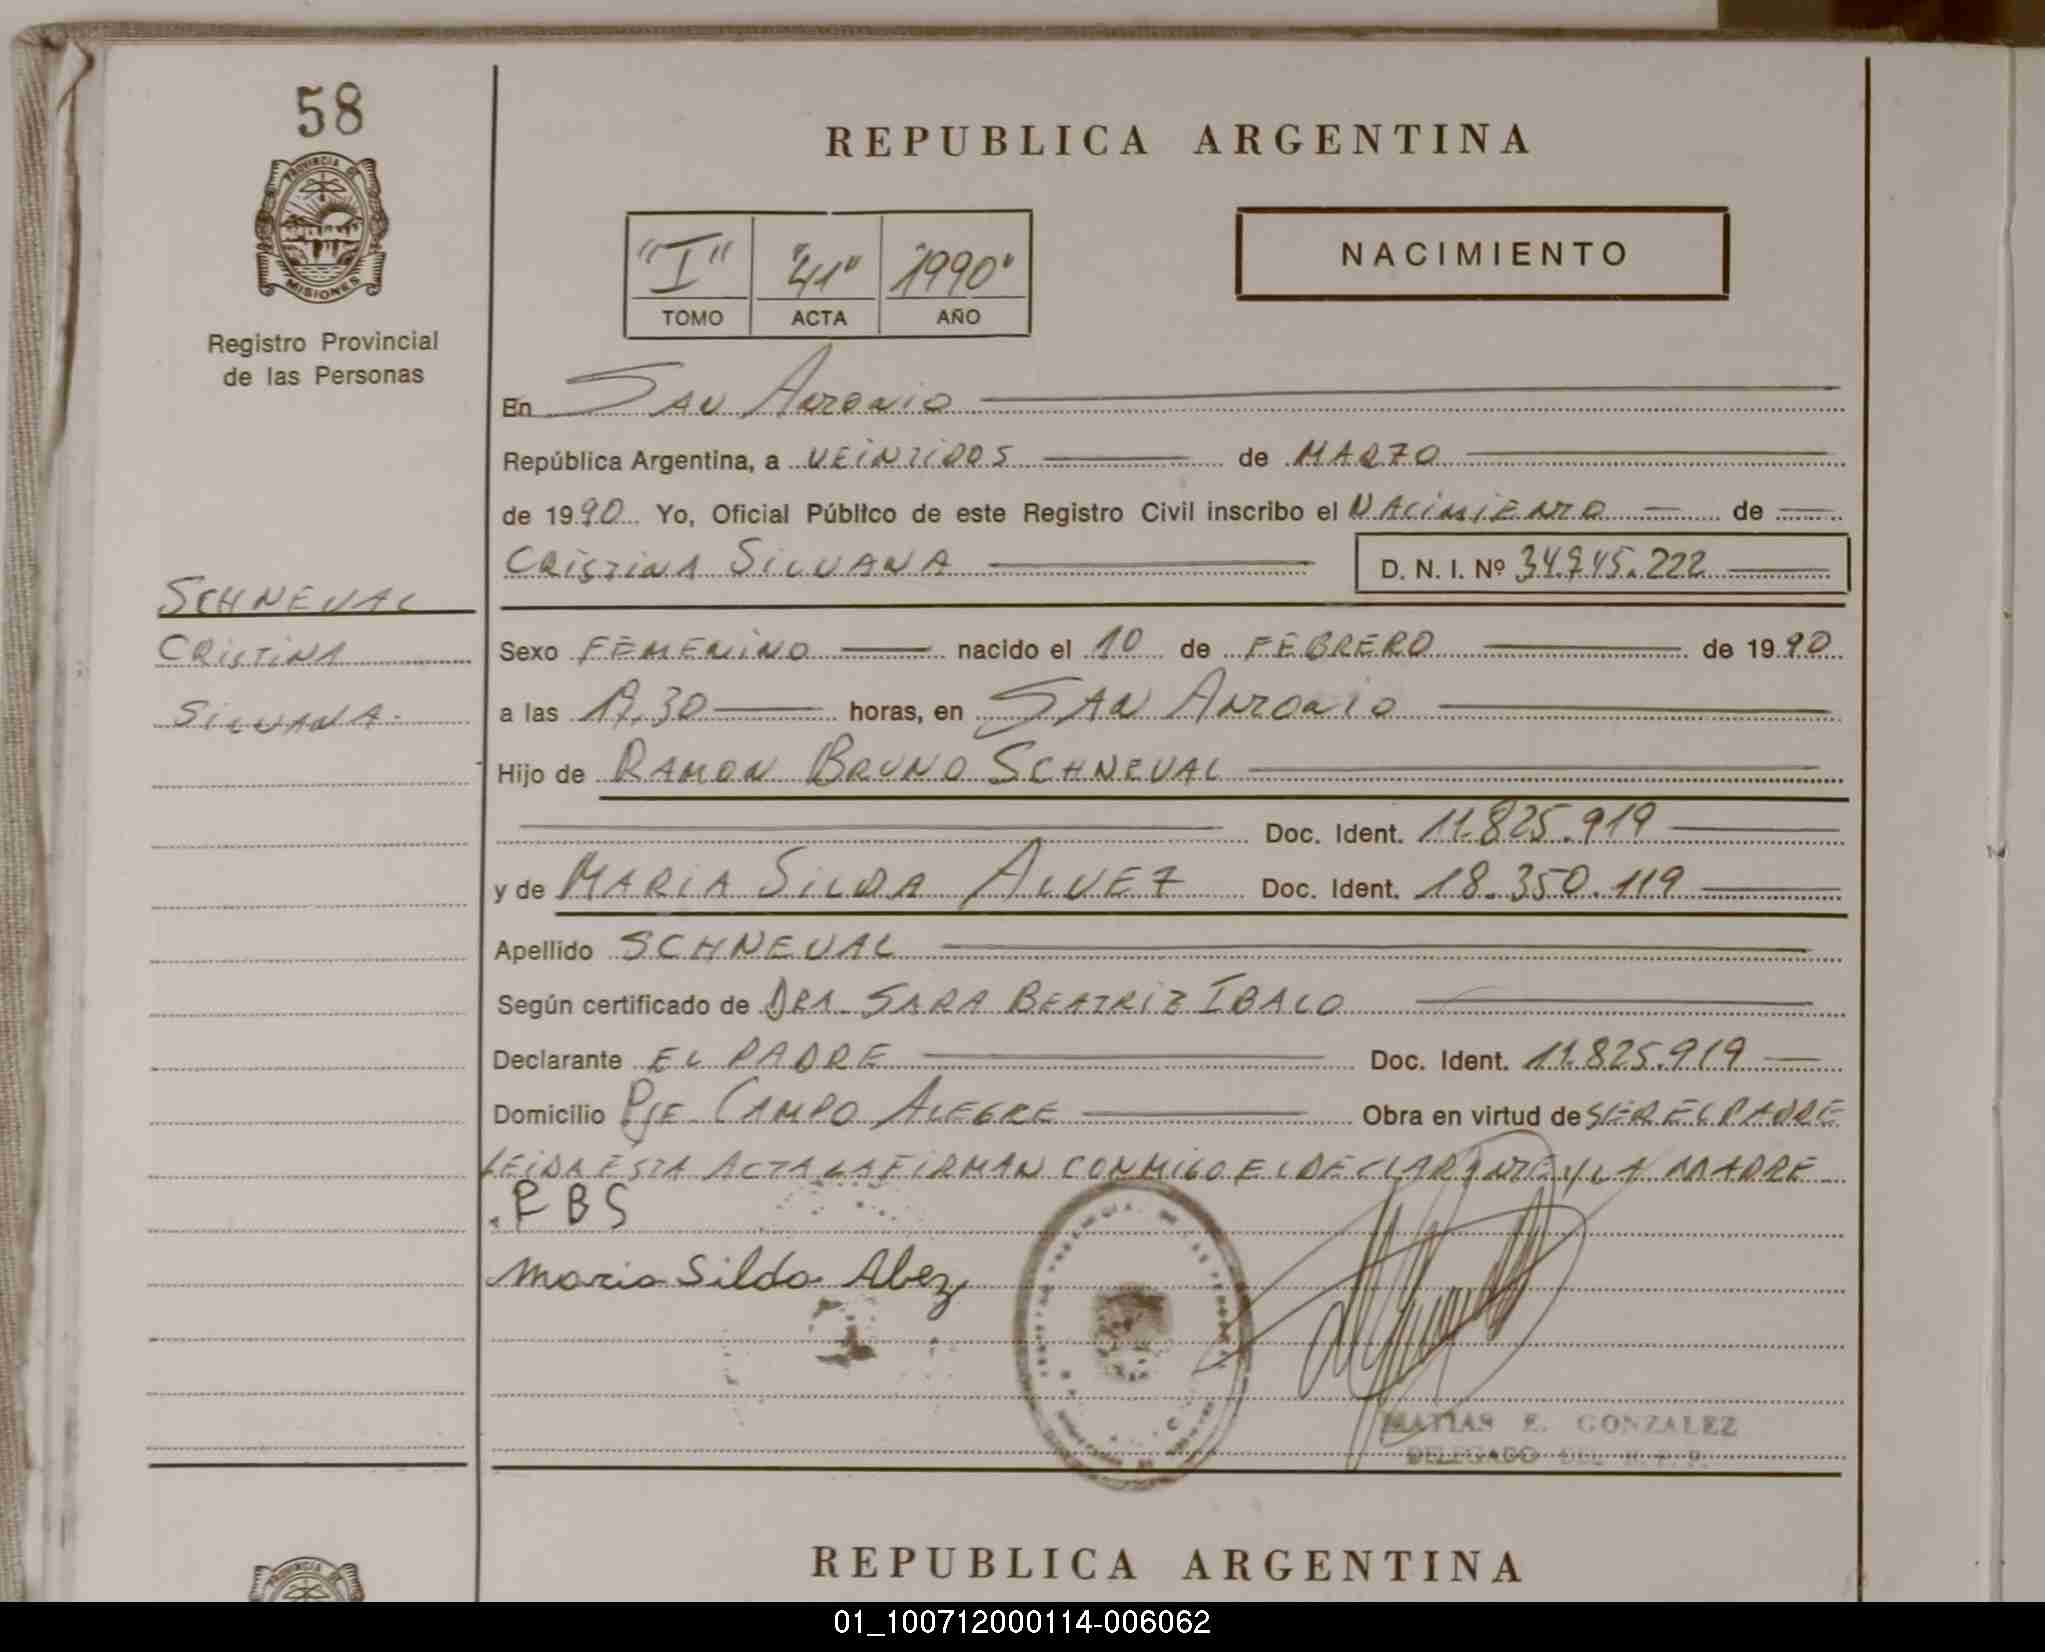 58
PROVINCIA DE
MISIONES
Registro Provincial
de las Personas
SCHNEVAL
CRISTINA
SILVANA.
REPUBLICA ARGENTINA
"I" "41" "1990"
TOMO ACTA AÑO
NACIMIENTO
En SAN ANTONIO
República Argentina, a VEINTIDOS de MARZO
de 1990 Yo, Oficial Público de este Registro Civil inscribo el NACIMIENTO de
CRISTINA SILVANA D. N. I. Nº 34.945.222
Sexo FEMENINO nacido el 10 de FEBRERO de 1990
a las 17.30 horas, en SAN ANTONIO
Hijo de RAMON BRUNO SCHNEVAL
Doc. Ident. 11.825.919
y de MARIA SILDA ALVEZ Doc. Ident. 18.350.119
Apellido SCHNEVAL
Según certificado de DRA. SARA BEATRIZ IBALO
Declarante EL PADRE Doc. Ident. 11.825.919
Domicilio PJE CAMPO ALEGRE Obra en virtud de SER EL PADRE
LEIDA ESTA ACTA LA FIRMAN CONMIGO EL DECLARANTE Y LA MADRE
RBS
Maria Silda Alvez
MATIAS E. GONZALEZ
DELEGADO DEL R. P. P.
REPUBLICA ARGENTINA
01_100712000114-006062